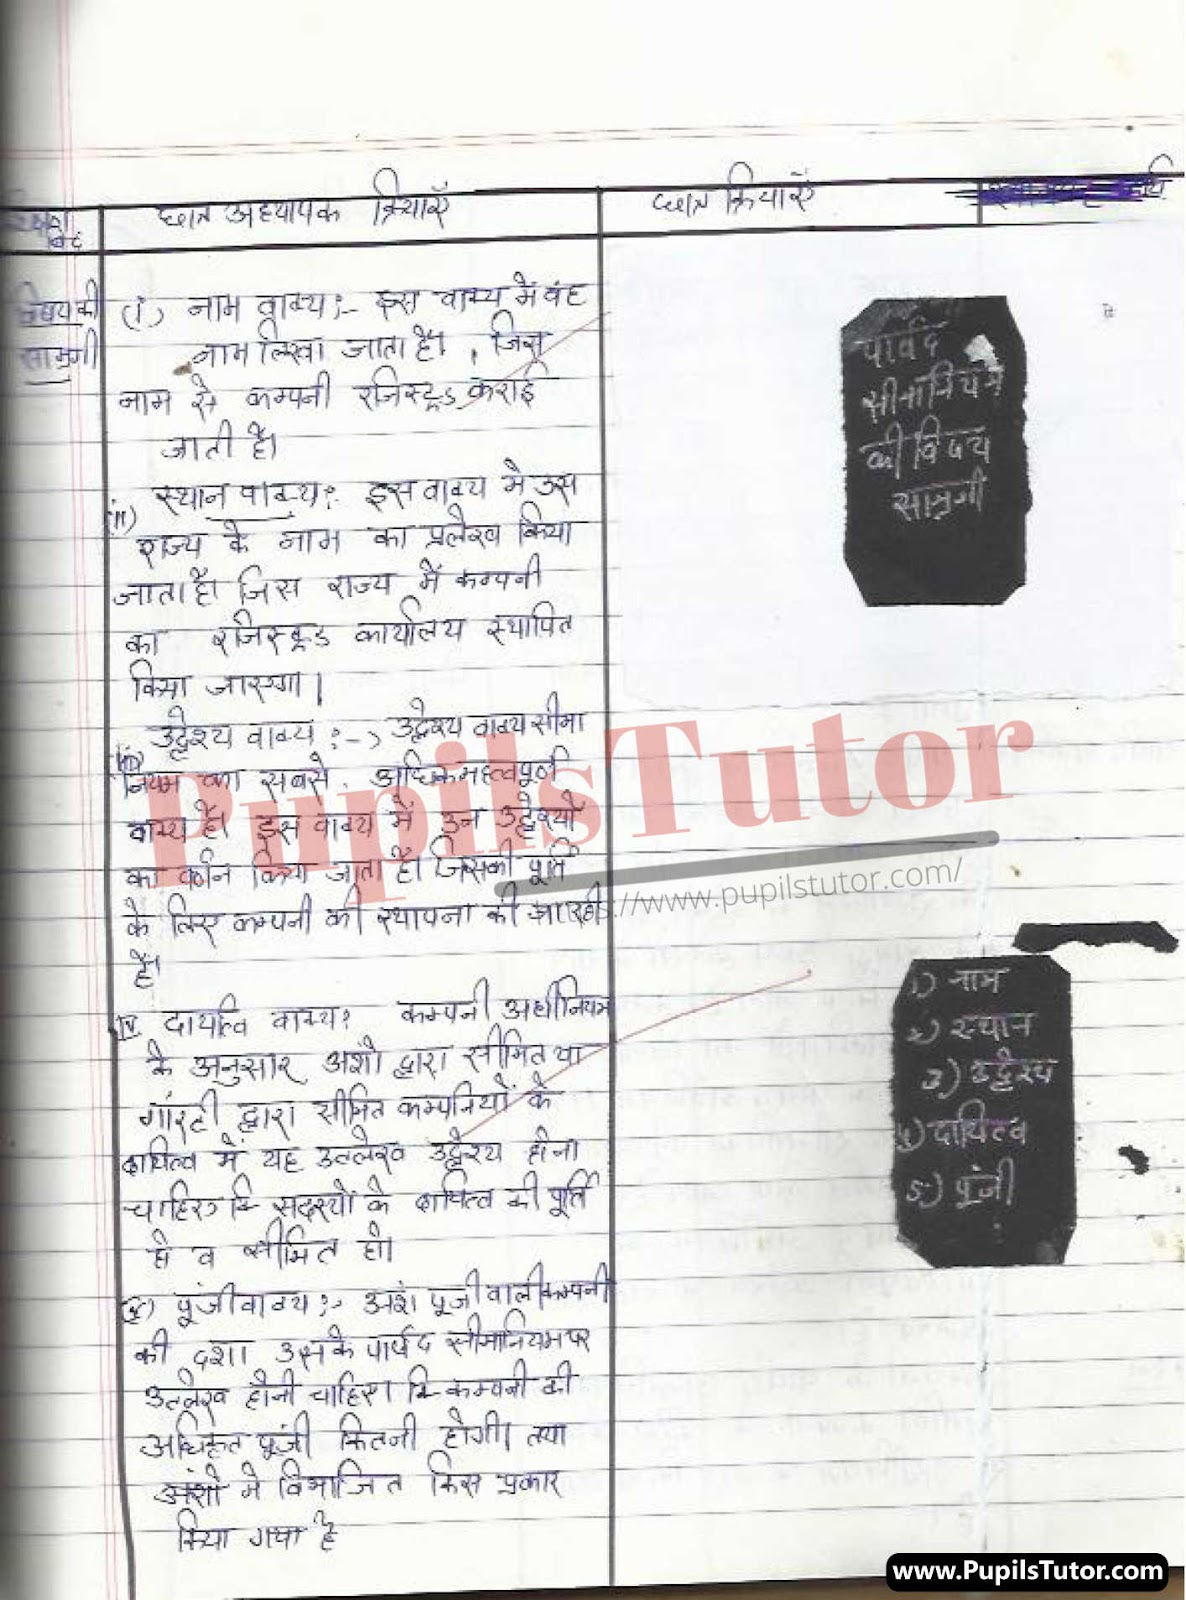 शिक्षण बिंदु
छात्र अध्यापक क्रियाएँ
छात्र क्रियाएँ
विषय की
सामग्री
(i) नाम वाक्य :- इस वाक्य में वह
नाम लिखा जाता है। , जिस
नाम से कम्पनी रजिस्ट्रड कराई
जाती है।
(ii) स्थान वाक्य :- इस वाक्य मे उस
राज्य के नाम का प्रलेख किया
जाता है। जिस राज्य में कम्पनी
का रजिस्ट्रड कार्यालय स्थापित
किया जाएगा।
(iii) उद्देश्य वाक्य :-> उद्देश्य वाक्य सीमा
नियम का सबसे अधिक महत्वपूर्ण
वाक्य है। इस वाक्य में उन उद्देश्यों
का वर्णन किया जाता है। जिसकी पूर्ति
के लिए कम्पनी की स्थापना की जा रही
है।
iv. दायित्व वाक्य : कम्पनी अधीनियम
के अनुसार अंशो द्वारा सीमित या
गांरटी द्वारा सीमित कम्पनियों के
दायित्व में यह उल्लेख उद्देश्य होना
चाहिए कि सदस्यों के दायित्व की पूर्ति
हो व सीमित हो।
(v) पूंजी वाक्य :- अंश पूजी वाली कम्पनी
की दशा उसके पार्षद सीमानियम पर
उल्लेख होनी चाहिए। कि कम्पनी की
अधिकृत पूंजी कितनी होगी। तथा
अंशो मे विभाजित किस प्रकार
किया गया है
पार्षद
सीमानियम
की विषय
सामग्री
1) नाम
2) स्थान
3) उद्देश्य
4) दायित्व
5) पूंजी
PupilsTutor
s://www.pupilstutor.com/
www.PupilsTutor.com